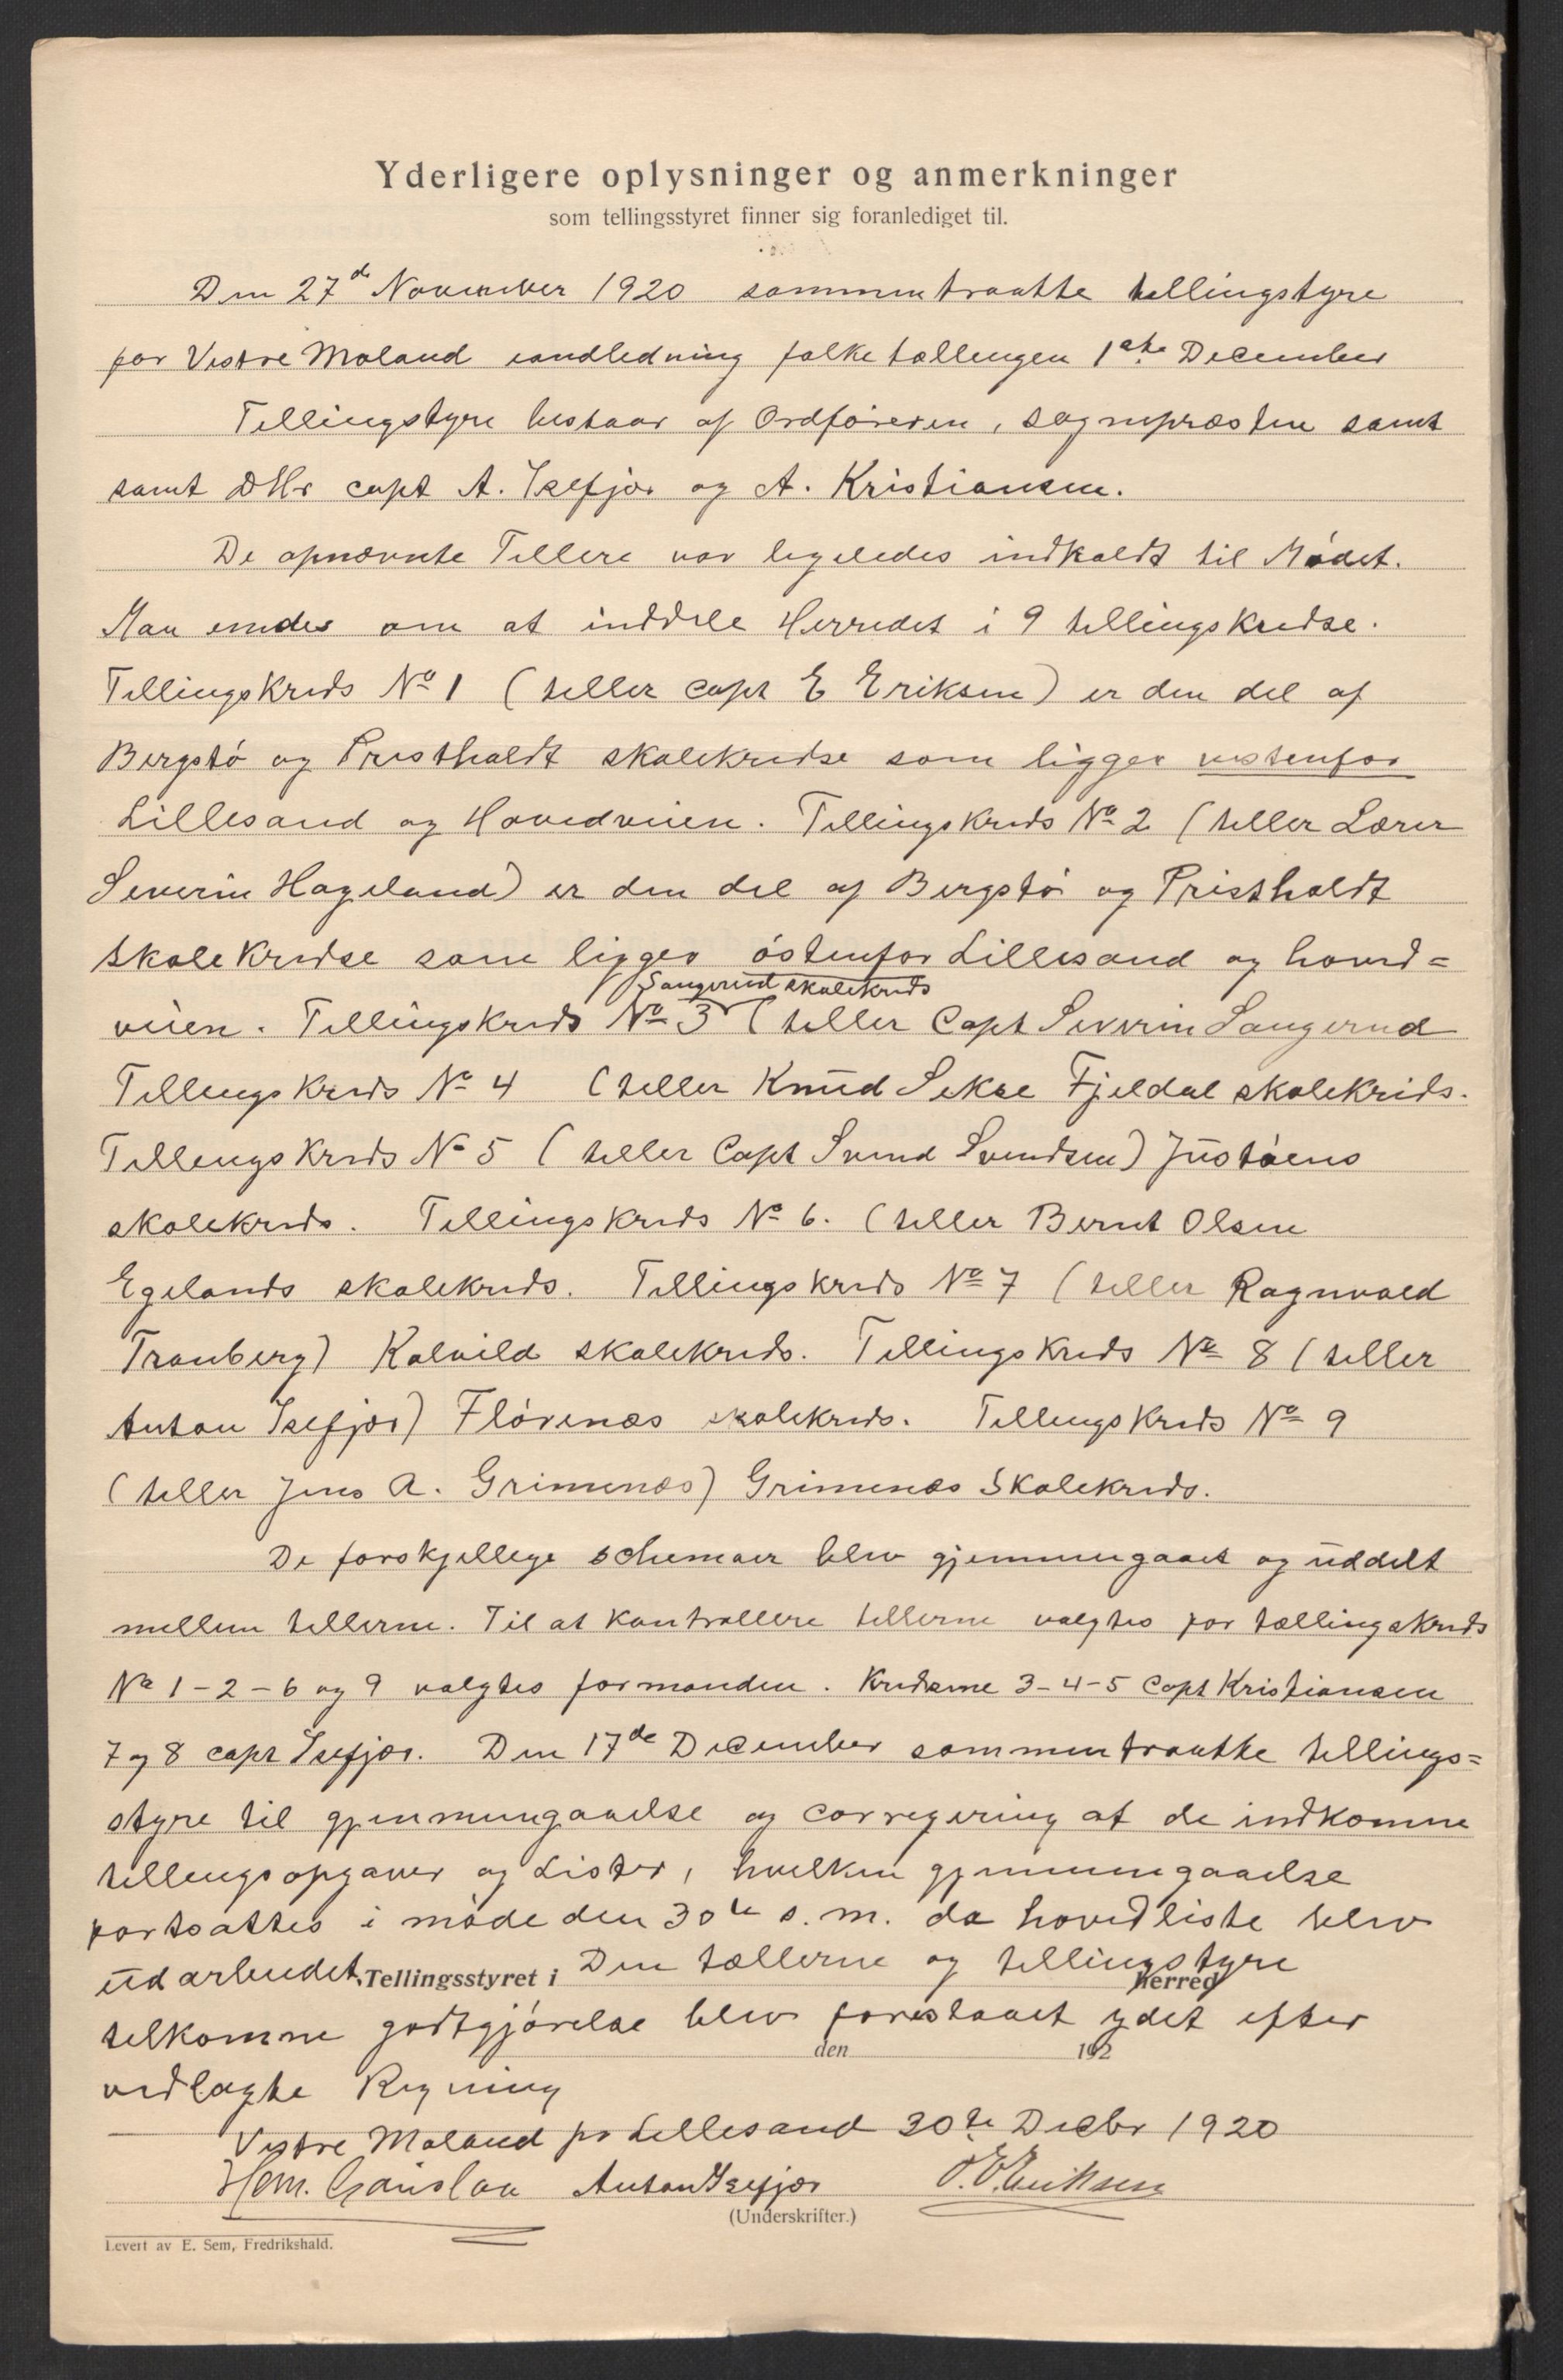 Yderligere oplysninger og anmerkninger
som tellingsstyret finner sig foranlediget til.
Den 27de November 1920 sammentraatte tellingstyre
for Vestre Moland i andledning folketællingen 1ste December
Tellingstyre bestaar af Ordføreren, sognepræsten samt
samt DHr capt A. Isefjær og A. Kristiansen.
De opnævnte Tellere var ligeledes indkaldt til Mødet.
Man enedes om at inddele Herredet i 9 tellingskredse.
Tellingskreds No 1 (teller capt E Eriksen) er den del af
Bergstø og Prestholdt skolekredse som ligger vestenfor
Lillesand og Hovedveien. Tellingskreds No 2 (teller Lærer
Severin Hageland) er den del af Bergstø og Prestholdt
skolekredse som ligger østenfor Lillesand og hoved=
Sangereid skolekreds
veien. Tellingskreds No 3 (teller Capt Severin Sangereid
Tellingskreds No 4 (teller Knud Sekse Fjeldal skolekrids.
Tellingskreds No 5 (teller Capt Svend Svendsen) Justøens
skolekreds. Tellingskreds No 6. (teller Bernt Olsen
Egelands skolekreds. Tellingskreds No 7 (teller Ragnvald
Tranberg) Kalvild skolekreds. Tellingskreds No 8 (teller
Anton Isefjær) Flørenæs skolekreds. Tellingskreds No 9
(teller Jens A. Grimenæs) Grimenæs Skolekreds.
De forskjellige schemaer blev gjennemgaaet og uddelt
mellem tellerne. Til at kontrollere tellerne valgtes for tællingskreds
No 1-2-6 og 9 valgtes formanden. Kredsene 3-4-5 Capt Kristiansen
7 og 8 capt Isefjær. Den 17de December sammentraatte tellings=
styre til gjennemgaaelse og corregering af de indkomne
tellingsopgaver og Lister, hvilken gjennemgaaelse
fortsattes i møde den 30te s.m. da hovedliste blev
udarbeidet. Tellingsstyret i Den tællerne og tellingstyre herred
tilkomne godtgjørelse blev forestaaet ydet efter
den 192
vedlagte Regning
Vestre Moland pr Lillesand 30te Decbr 1920
Anton Isefjær O. E. Eriksen
(Underskrifter.)
Levert av E. Sem, Fredrikshald.